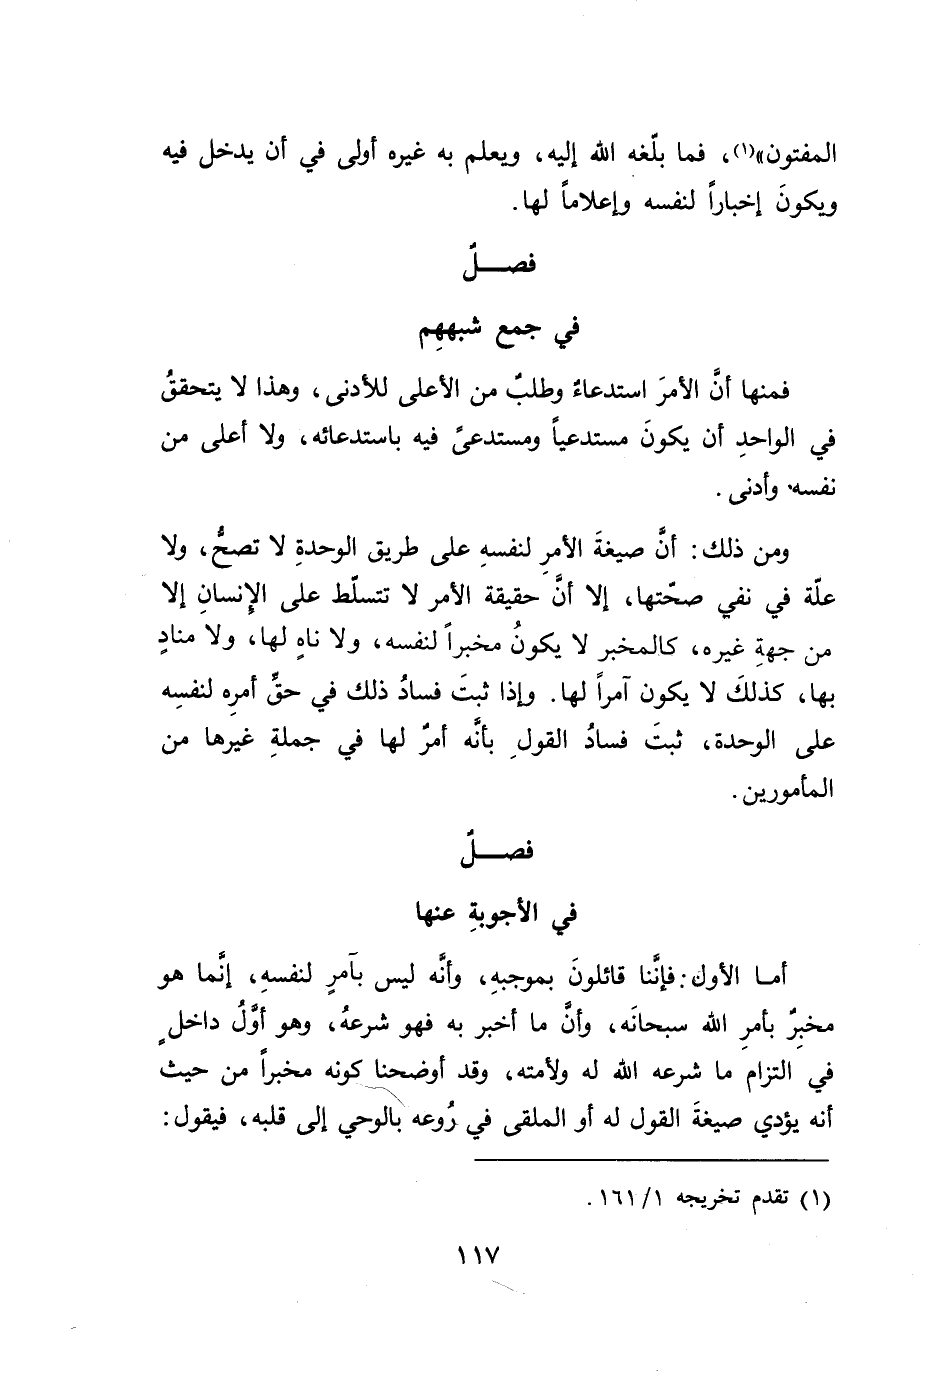 المفتون»(١)، فما بلّغه الله إليه، ويعلم به غيره أولى في أن يدخل فيه
ويكونَ إخباراً لنفسه وإعلاماً لها.
فصـــلٌ
في جمع شبههِم
فمنها أنَّ الأمرَ استدعاءٌ وطلبٌ من الأعلى للأدنى، وهذا لا يتحققُ
في الواحدِ أن يكونَ مستدعياً ومستدعىً فيه باستدعائه، ولا أعلى من
نفسه وأدنى.
ومن ذلك: أنَّ صيغةَ الأمرِ لنفسهِ على طريق الوحدةِ لا تصحُّ، ولا
علّة في نفي صحّتها، إلا أنَّ حقيقة الأمر لا تتسلّط على الإِنسانِ إلا
من جهةِ غيره، كالمخبر لا يكونُ مخبراً لنفسه، ولا ناهٍ لها، ولا منادٍ
بها، كذلكَ لا يكون آمراً لها. وإذا ثبتَ فسادُ ذلك في حقِّ أمرِه لنفسِه
على الوحدة، ثبتَ فسادُ القولِ بأنَّه أمرٌ لها في جملةِ غيرها من
المأمورين.
فصـــلٌ
في الأجوبةِ عنها
أما الأول: فإنَّنا قائلونَ بموجبهِ، وأنَّه ليس بآمرٍ لنفسهِ، إنَّما هو
مخبِرٌ بأمرِ الله سبحانَه، وأنَّ ما أخبر به فهو شرعهُ، وهو أوَّلُ داخلٍ
في التزام ما شرعه الله له ولأمته، وقد أوضحنا كونه مخبراً من حيث
أنه يؤدي صيغةَ القول له أو الملقى في رُوعه بالوحي إلى قلبه، فيقول:
(١) تقدم تخريجه ١/ ١٦١.
١١٧